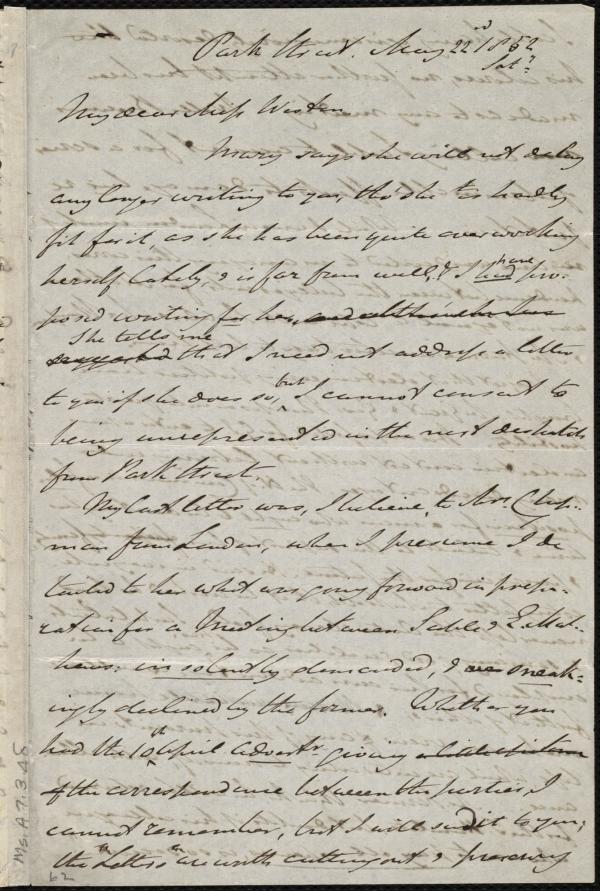 Park Street. May 22nd 1852
Saty
My dear Miss Weston
Mary says she will not delay
any longer writing to you, tho' she is hardly
fit for it, as she has been quite overworking
herself lately, & is far from well, & I had have pro-
posed writing for her, and altho' she has
suggested She tells me that I need not address a letter
to you if she does so, but I cannot consent to
being unrepresented in the next despatch
from Park Street.
My last letter was, I believe, to Mrs. Chap-
man from London, when I presume I de
tailed to her what was going forward in prepa-
ration for a Meeting between Sable & E. Mat-
hews: insolently demanded, & sneak-
ingly declined by the former. Whether you
had the 10th April Advertr. giving
of the correspondence between the parties, I
cannot remember, but I will send it to you;
the "Letters" are worth cutting out & preserving
Ms A.7.3.48
62